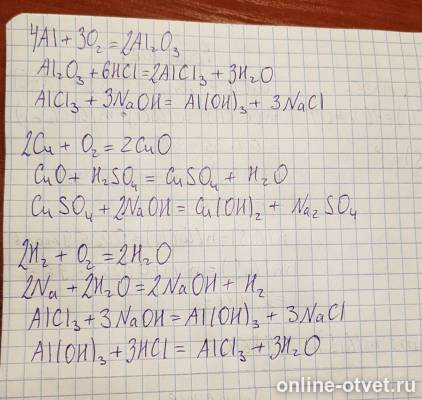 4Al + 3O₂ = 2Al₂O₃
Al₂O₃ + 6HCl = 2AlCl₃ + 3H₂O
AlCl₃ + 3NaOH = Al(OH)₃ + 3NaCl
2Cu + O₂ = 2CuO
CuO + H₂SO₄ = CuSO₄ + H₂O
CuSO₄ + 2NaOH = Cu(OH)₂ + Na₂SO₄
2H₂ + O₂ = 2H₂O
2Na + 2H₂O = 2NaOH + H₂
AlCl₃ + 3NaOH = Al(OH)₃ + 3NaCl
Al(OH)₃ + 3HCl = AlCl₃ + 3H₂O
online-otvet.ru